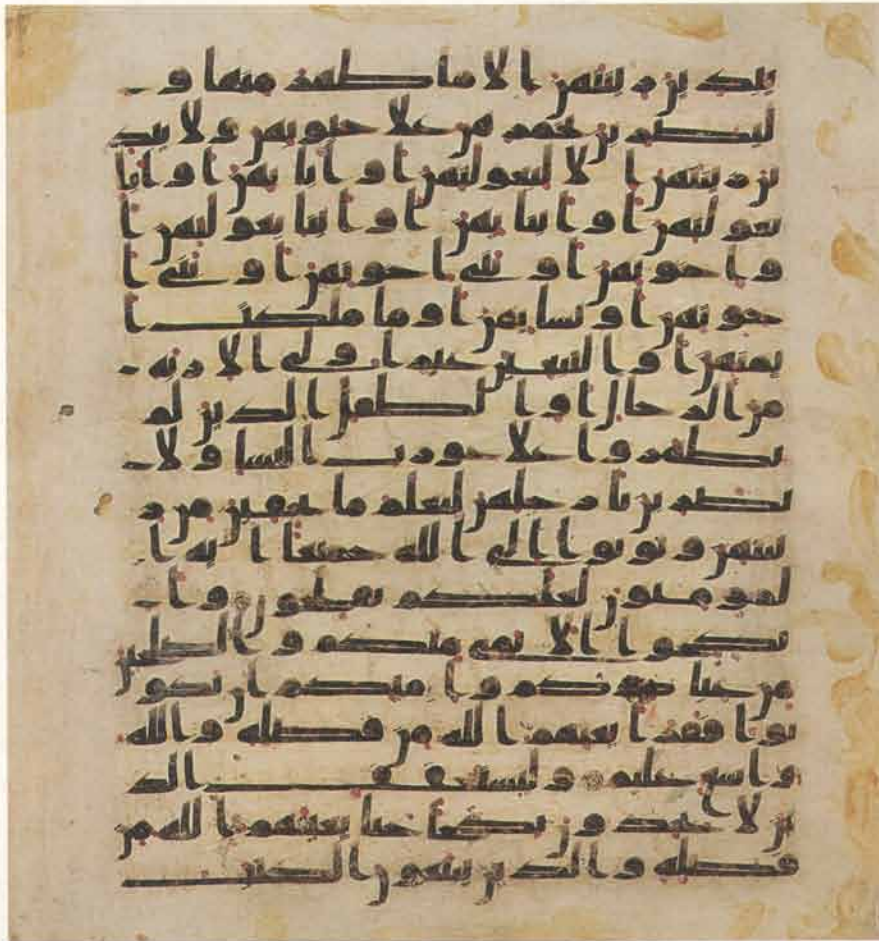 يبدين زينتهن الا ما ظهر منها و
ليضربن بخمرهن على جيوبهن ولا يبد
ين زينتهن الا لبعولتهن او ابايهن او ابا
بعولتهن او ابنايهن او ابنا بعولتهن ا
و اخونهن او بني اخونهن او بني ا
خوتهن او نسايهن او ما ملكت ا
يمنهن او التبعين غير اولي الاربة
من الرجال او الطفل الذين لم
يظهروا على عورت النسا ولا
يضربن بارجلهن ليعلم ما يخفين من ز
ينتهن وتوبوا الى الله جميعا ايه ا
لمومنون لعلكم تفلحون وا
نكحوا الايمى منكم والصلحين
من عبادكم واميكم ان يكو
نوا فقرا يغنهم الله من فضله والله
واسع عليم وليستعفف الذ
ين لا يجدون نكاحا حتى يغنيهم الله من
فضله والذين يبتغون الكتب